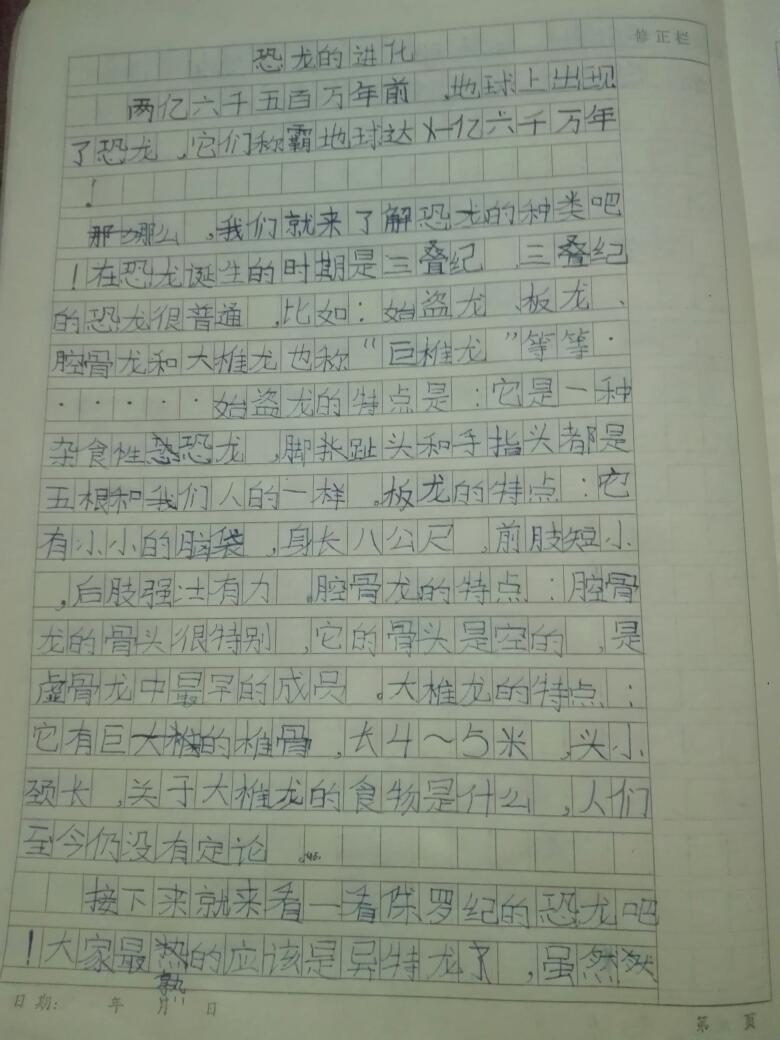 修正栏
恐龙的进化
两亿六千五百万年前,地球上出现
了恐龙,它们称霸地球达一亿六千万年
!
那么,我们就来了解恐龙的种类吧
!在恐龙诞生的时期是三叠纪,三叠纪
的恐龙很普通,比如:始盗龙、板龙、
腔骨龙和大椎龙也称“巨椎龙”等等·
·····始盗龙的特点是:它是一种
杂食性恐龙,脚趾头和手指头都是
五根和我们人的一样。板龙的特点:它
有小小的脑袋,身长八公尺,前肢短小
,后肢强壮有力。腔骨龙的特点:腔骨
龙的骨头很特别,它的骨头是空的,是
虚骨龙中最早的成员。大椎龙的特点:
它有巨大的椎骨,长4～5米,头小
颈长,关于大椎龙的食物是什么,人们
至今仍没有定论。
接下来就来看一看侏罗纪的恐龙吧
!大家最熟的应该是异特龙了,虽然
日期: 年 月 日
第 页